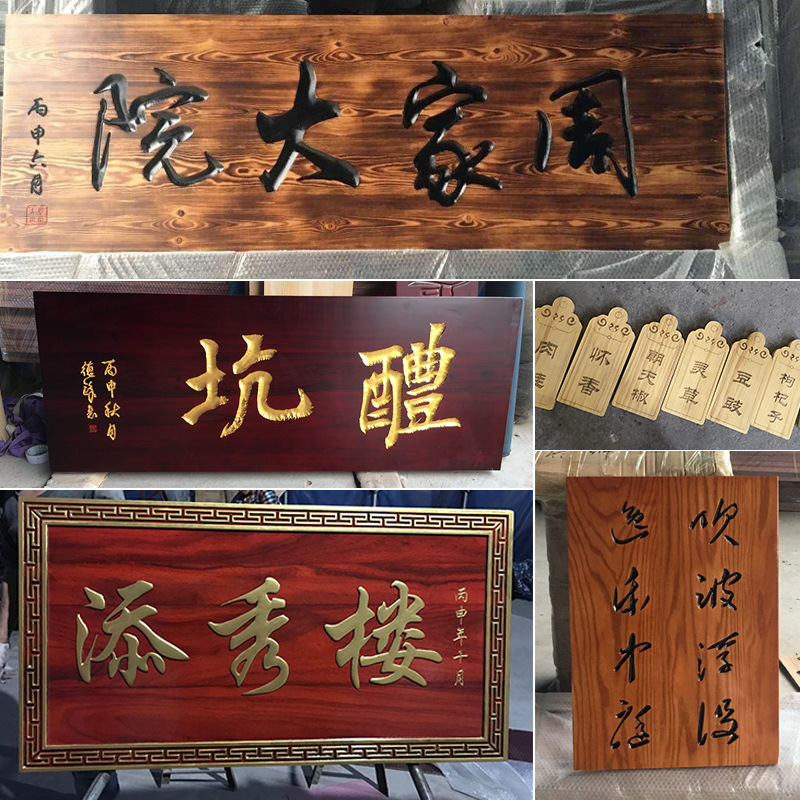 周家大院
丙申六月
醴坑
丙申秋月
肉
怀香
朝天椒
灵草
豆豉
枸杞子
添秀楼
丙申年十月
吹波浮